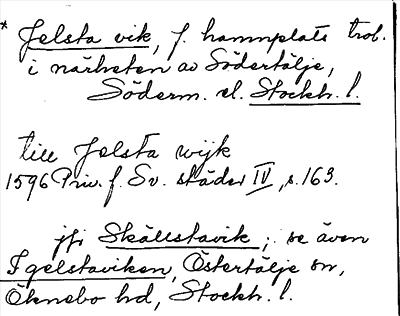 * Jelsta vik, f. hamnplats trol.
i närheten av Södertälje,
Söderm. el. Stockh. l.
till Jelsta wijk
1596 Priv. f. Sv. städer IV, s. 163.
jfr Skällstavik; se även
Igelstaviken, Östertälje sn,
Öknebo hd, Stockh. l.